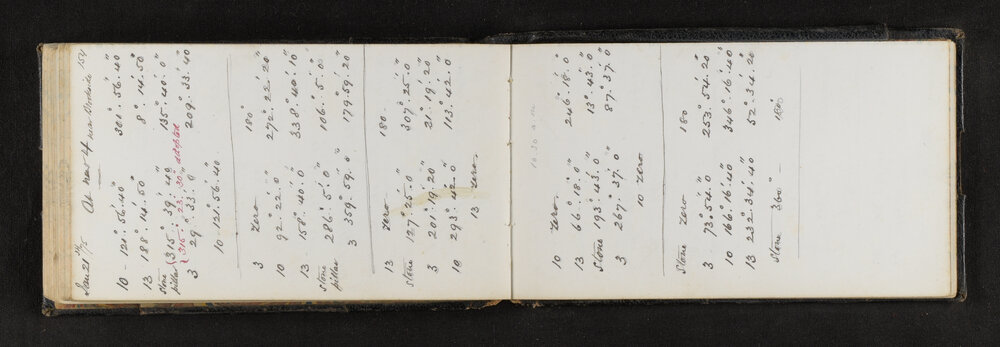 Jan 21st /75 At new 4 near Orchards 154
10 - 121°.56'.40" 301°.56'.40"
13 188°.14'.50" 8°.14'.50"
stone pillar {315°.39'.40" 135°.40'.0"
{315°.23'.30" adopted
3 29°.33'. 209°.33'.40"
10 121°.56'.40"
3 Zero 180°
10 92°.22'.0" 272°.22'.20"
13 158°.40'.0" 338°.40'.10"
stone pillar 286°.5'.0" 106°.5'.0"
3 359°.59'.0" 179°.59'.20"
13 Zero 180
stone 127°.25'.0" 307°.25'.0"
3 201°.19'.20" 21°.19'.20"
10 293°.42'.0" 113°.42'.0"
13 Zero
10.30 a.m.
10 Zero
13 66°.18'.0" 246°.18'.0"
Stone 193°.43'.0" 13°.43'.0"
3 267°.37'.0" 87°.37'.0"
10 Zero
Stone Zero 180
3 73°.54'.0" 253°.54'.20"
10 166°.16'.40" 346°.16'.40"
13 232°.34'.40" 52°.34'.20"
Stone 360° 180°